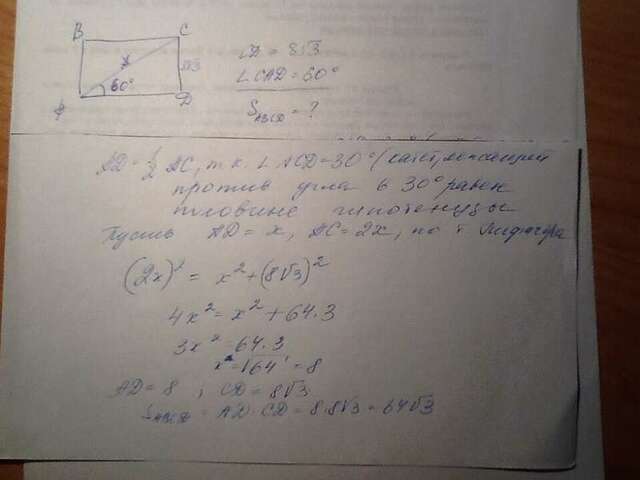 B C
60°
A D
CD = 8√3
∠CAD = 60°
S ABCD = ?
AD = 1/2 AC, т.к. ∠ACD = 30° (катет, лежащий
против угла в 30° равен
половине гипотенузы
Пусть AD = x, AC = 2x, по т. Пифагора
(2x)² = x² + (8√3)²
4x² = x² + 64·3
3x² = 64·3
x = √64 = 8
AD = 8; CD = 8√3
S ABCD = AD·CD = 8·8√3 = 64√3